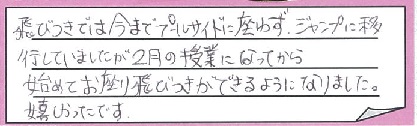 飛びつきでは今までプールサイドに座わず、ジャンプに移
行していましたが2月の授業になってから
始めてお座り飛びつきができるようになりました。
嬉しかったです。